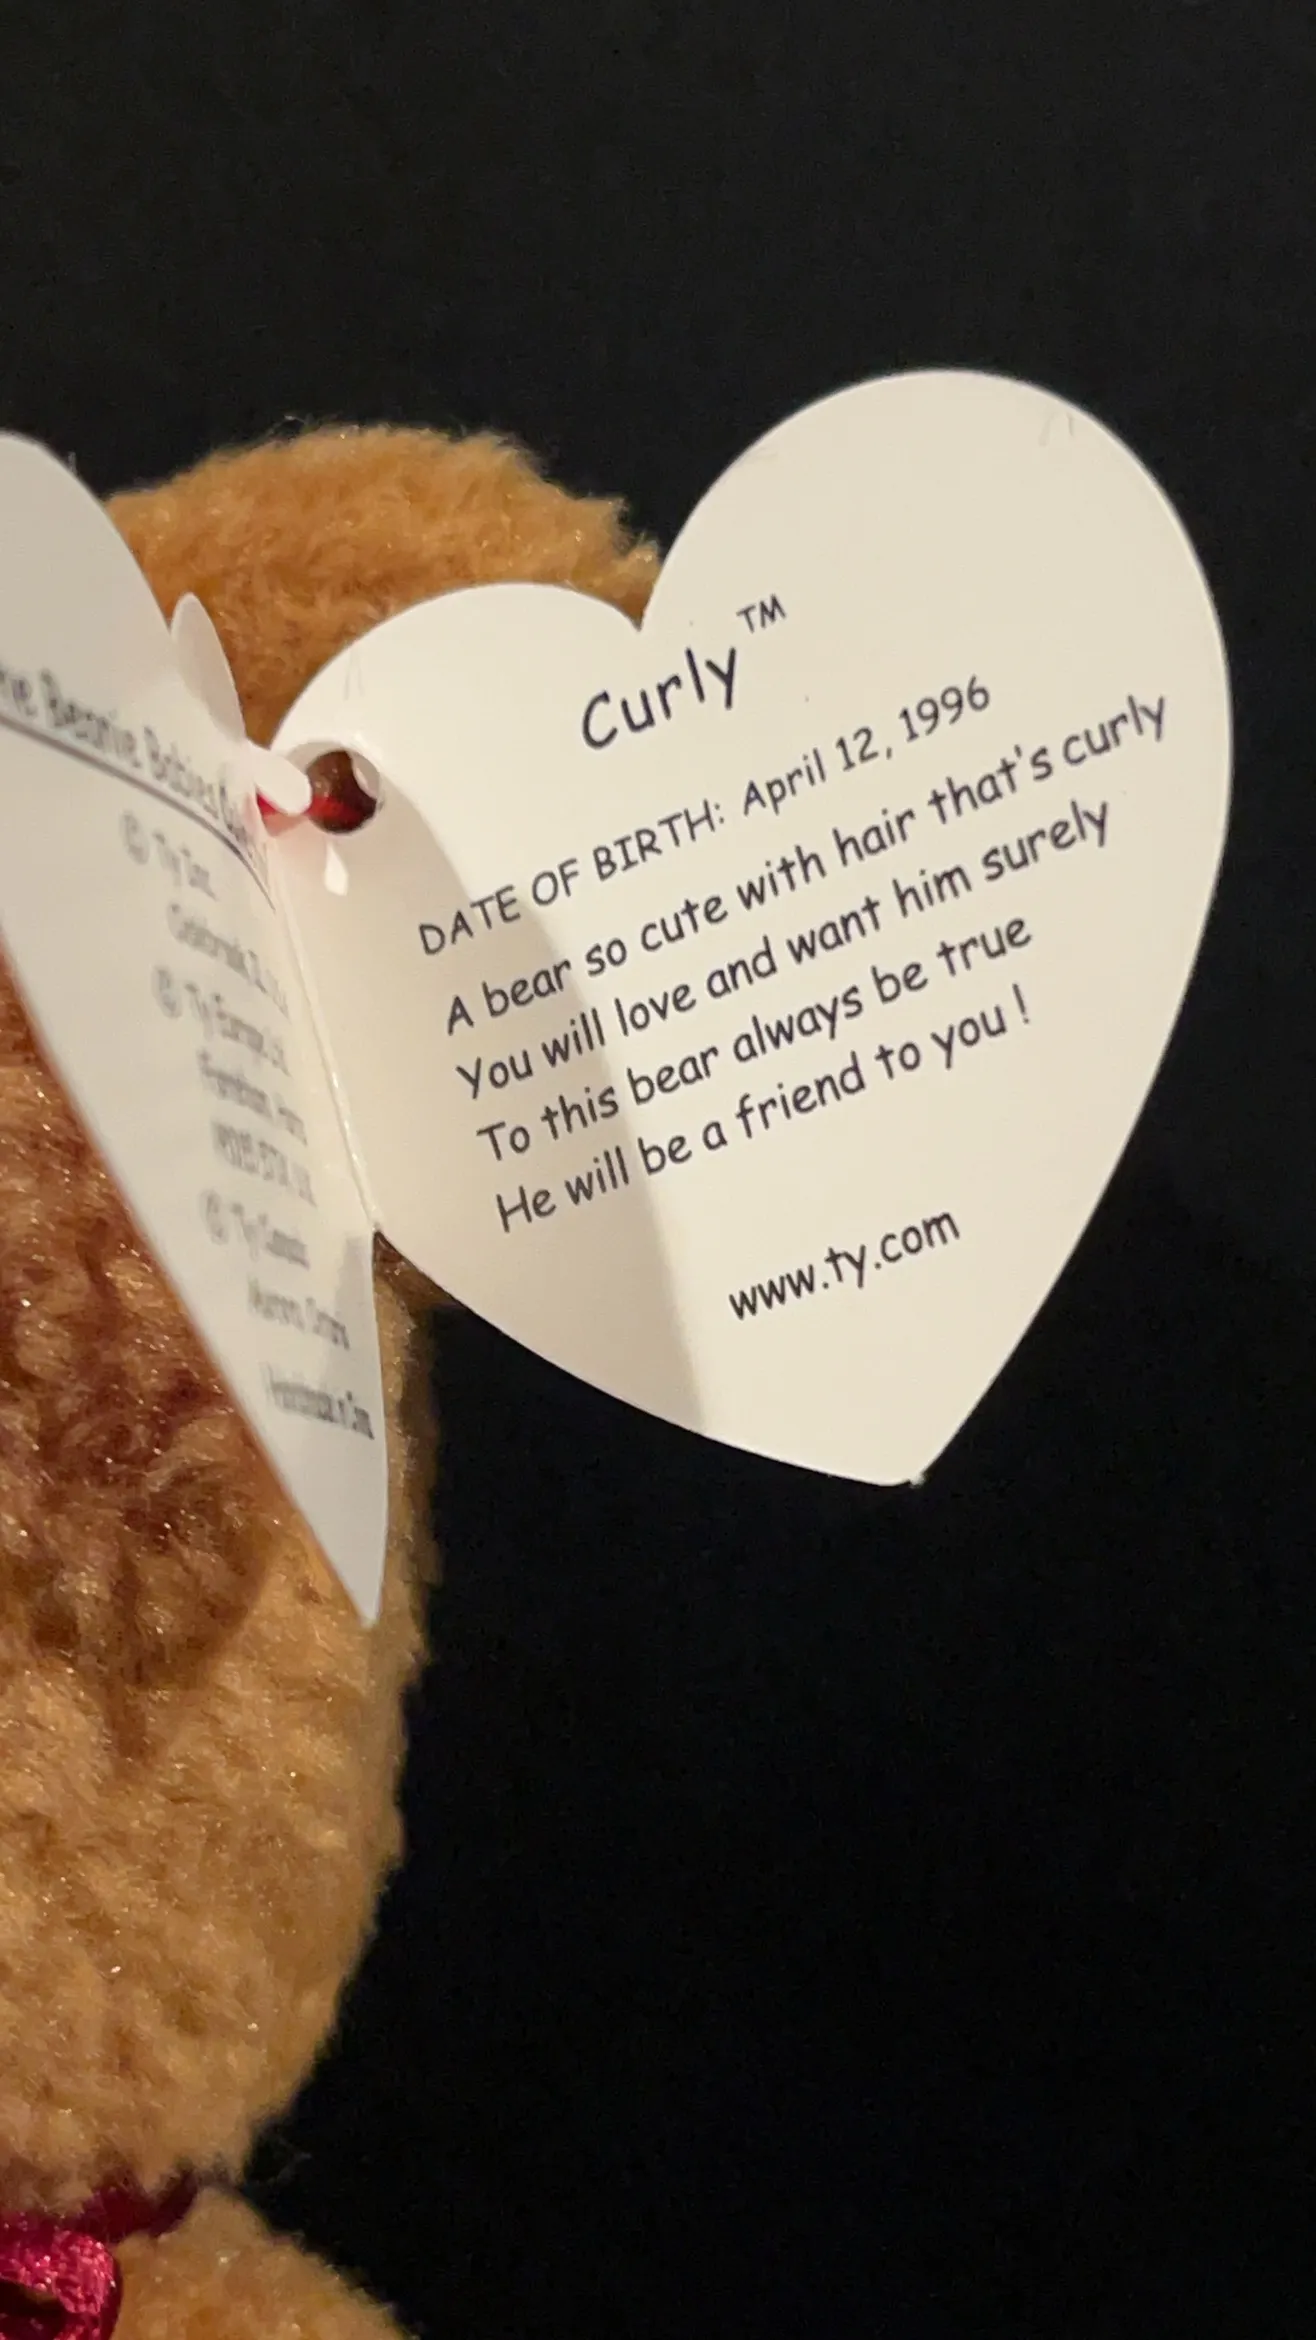 Beanie Babies
© Ty Inc.
© Ty Europe Ltd.
© Ty Canada
Curly™
DATE OF BIRTH: April 12, 1996
A bear so cute with hair that's curly
You will love and want him surely
To this bear always be true
He will be a friend to you !
www.ty.com